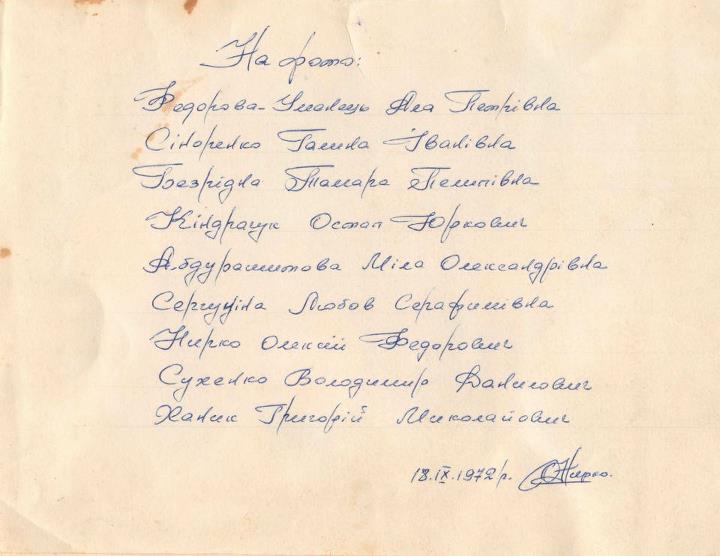 На фото:
Федорова-Уманець Ала Петрівна
Сіноренко Галина Іванівна
Безрідна Тамара Пелипівна
Кіндрачук Остап Юркович
Абдурашитова Міла Олександрівна
Сергуніна Любов Серафимівна
Нирко Олексій Федорович
Сухенко Володимир Данилович
Ханик Григорій Миколайович
18.ІХ.1972р. ОНирко.